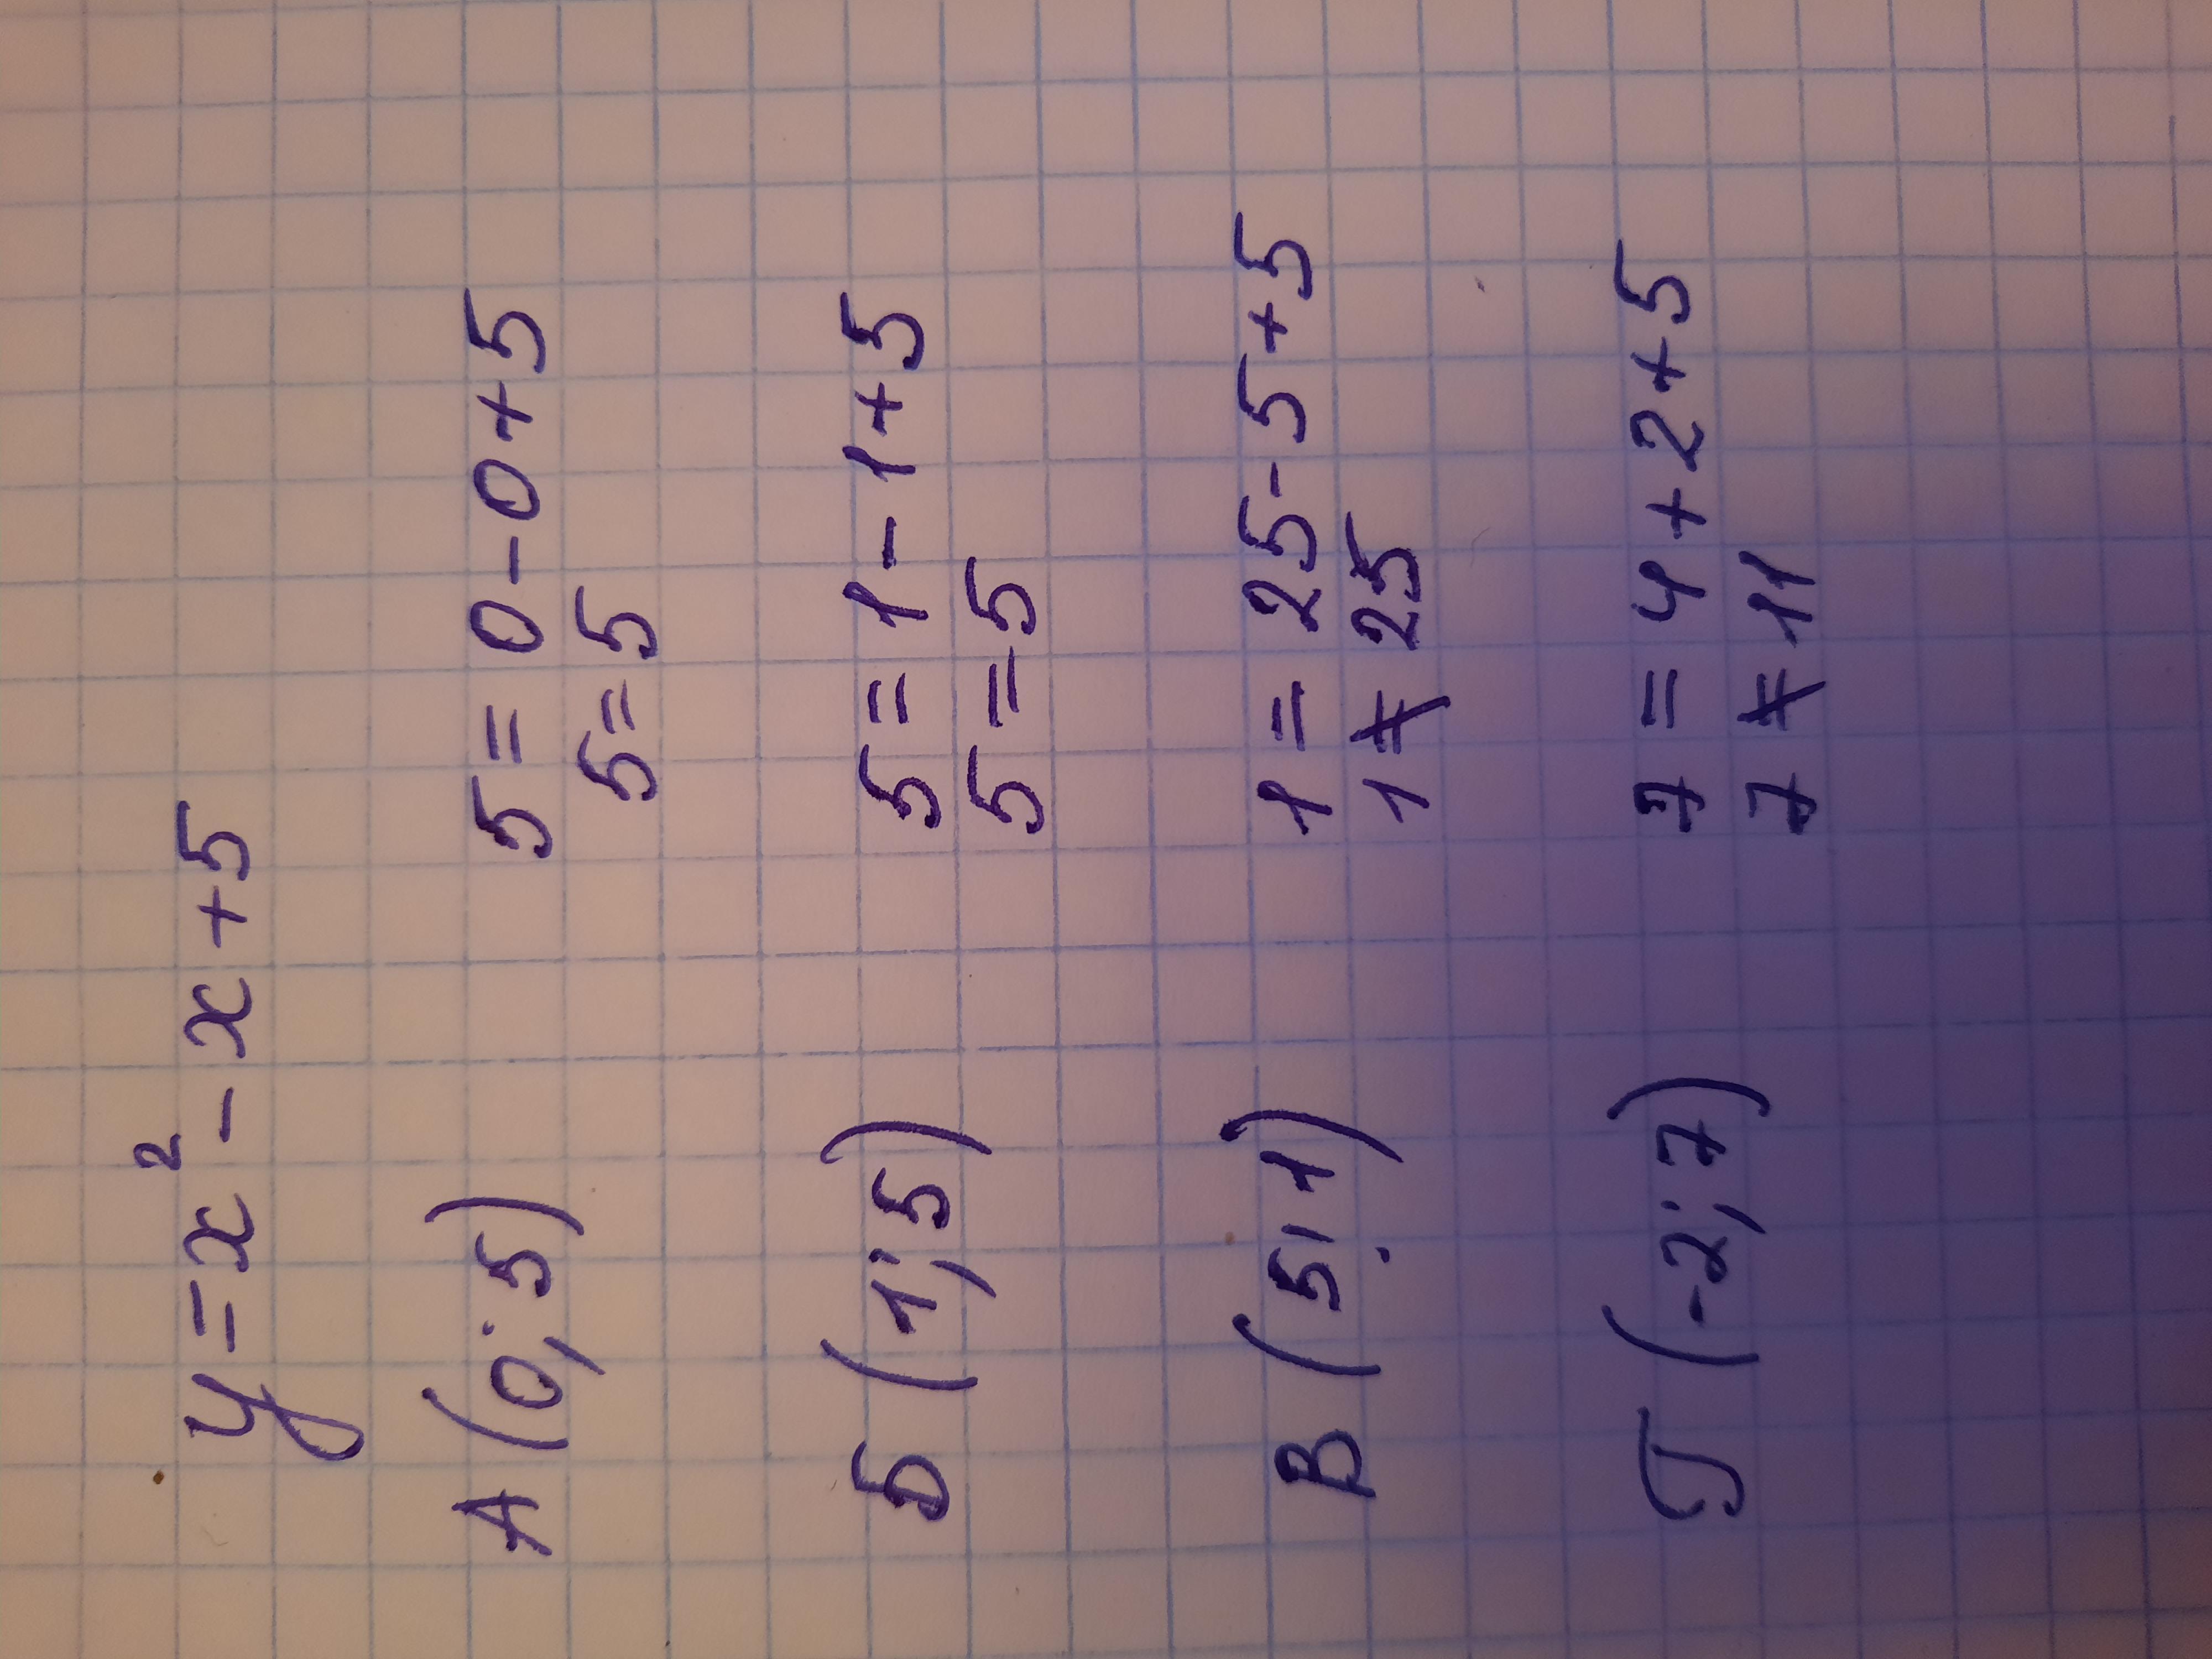 y = x² - x + 5
А (0; 5) 5 = 0 - 0 + 5
5 = 5
Б (1; 5) 5 = 1 - 1 + 5
5 = 5
В (5; 1) 1 = 25 - 5 + 5
1 ≠ 25
Г (-2; 7) 7 = 4 + 2 + 5
7 ≠ 11